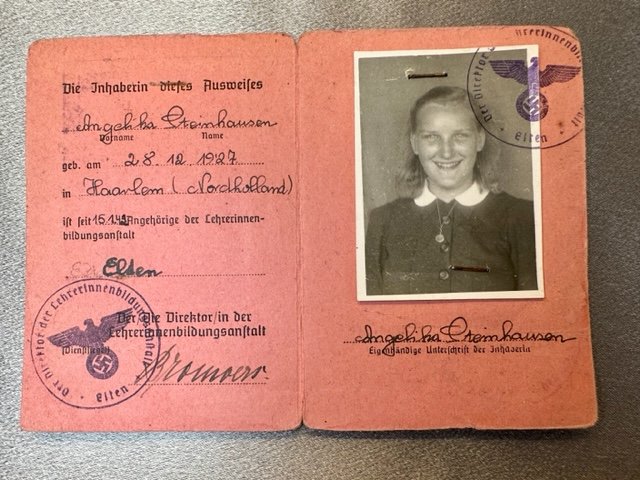 Die Inhaberin dieses Ausweises
Angelika Steinhausen
Vorname Name
geb. am 28.12.1927
in Haarlem (Nordholland)
ist seit 15.1.42 Angehörige der Lehrerinnen-
bildungsanstalt
Elten
Der/Die Direktor/in der
Lehrerinnenbildungsanstalt
(Dienstsiegel)
Der Direktor der Lehrerinnenbildungsanstalt
Elten
Der Direktor
Lehrerinnenbildungs
Elten
Angelika Steinhausen
Eigenhändige Unterschrift der Inhaberin